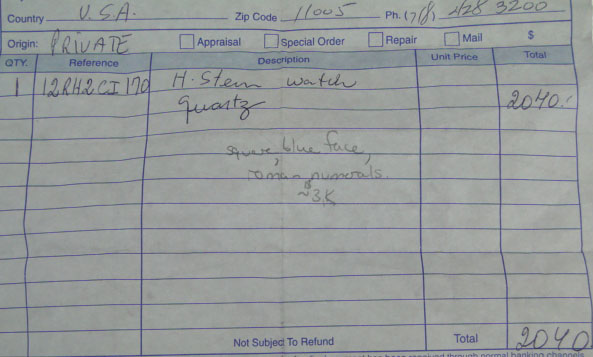 Country U.S.A. Zip Code 11005 Ph. (718) 428 3200
Origin: PRIVATE Appraisal Special Order Repair Mail $
QTY. Reference Description Unit Price Total
1 12RH2CI170 H. Stern watch
quartz 2040.-
square blue face,
roman numerals.
~$3K
Not Subject To Refund Total 2040.
been received through normal banking channels